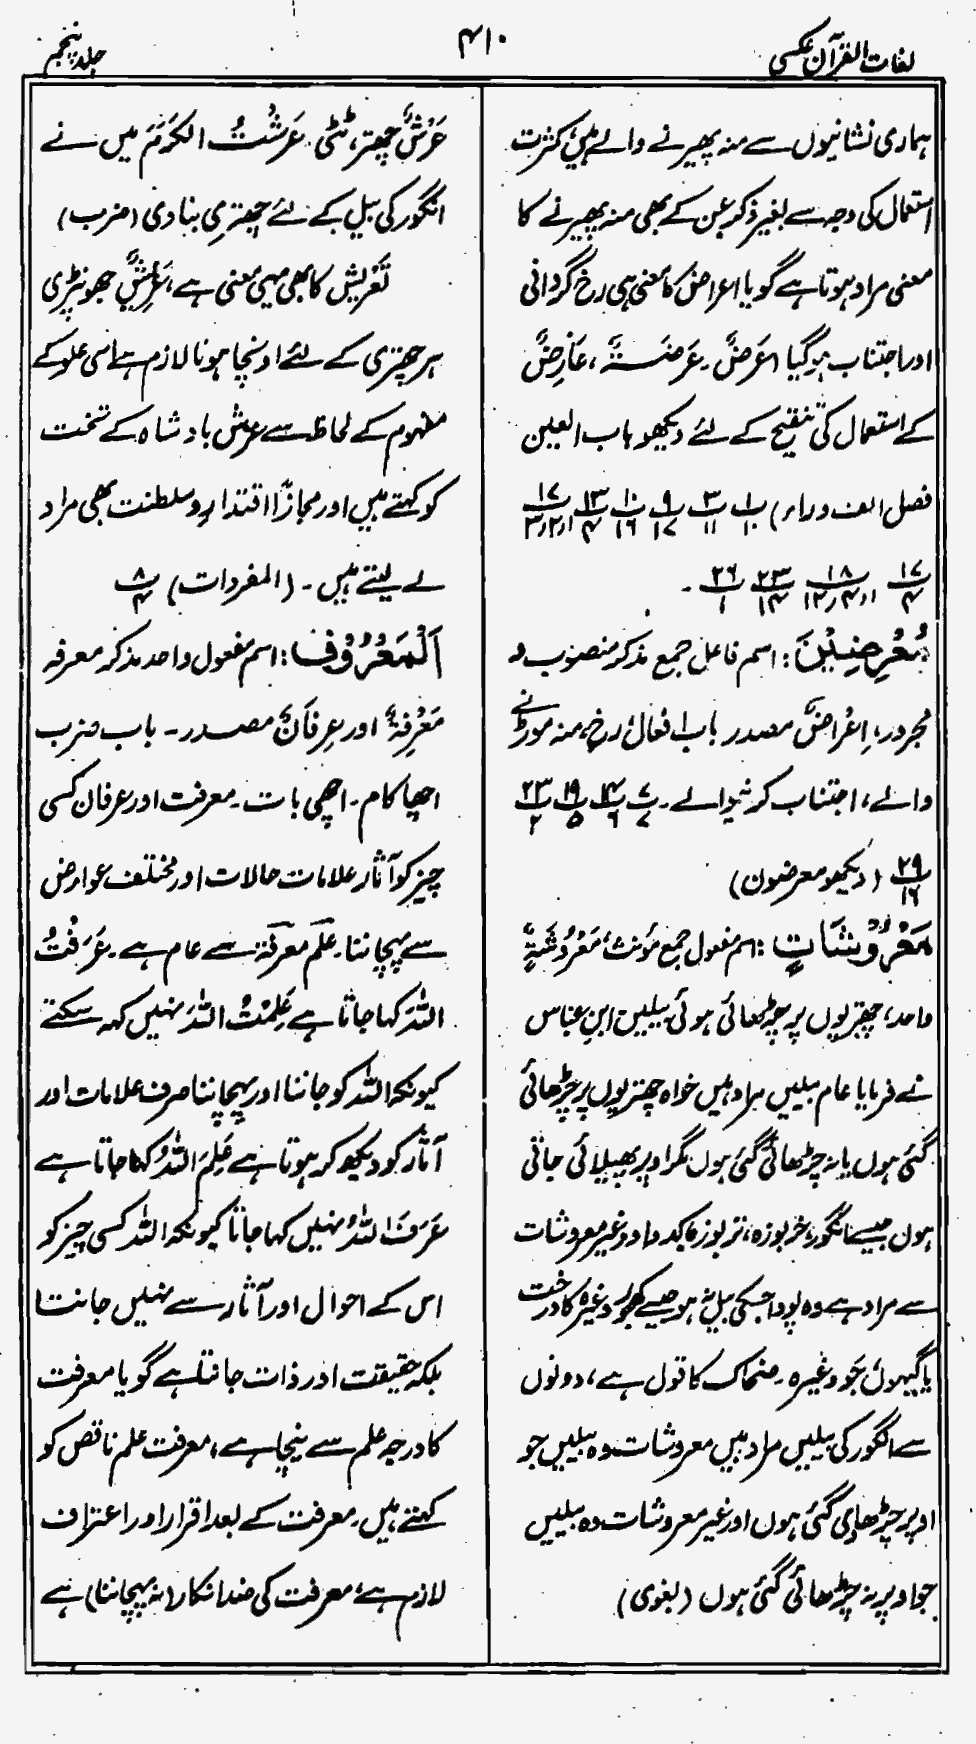 لغات القرآن عکسی
۴۱۰
جلد پنجم
ہماری نشانیوں سے منہ پھیرنے والے ہیں، کثرت
استعمال کی وجہ سے بغیر ذکر عن کے بھی منہ پھیرنے کا
معنی مراد ہوتا ہے گویا اعراض کا معنی ہی رخ گردانی
اور اجتناب ہو گیا (عَرَضٌ۔ عَرَضَۃٌ، عَارِضٌ
کے استعمال کی تنقیح کے لئے دیکھو باب العین
فصل الف و راء) ۱/۱۰ ۳/۱۱ ۹/۱۷ ۱۰/۱۶ ۱۳/۴ ۱۷/۱ر۲ر۳
۱۷/۴ ۱۸/۱ر۴ر۱۲ ۲۳/۱۴ ۲۶/۱ ۔
مُعْرِضِیْنَ: اسم فاعل جمع مذکر منصوب و
مجرور، اِعْرَاضٌ مصدر باب افعال رخ، منہ موڑنے
والے، اجتناب کرنیوالے۔ ۷/۷ ۱۴/۶ ۱۹/۵ ۲۳/۲
۲۹/۱۶ (دیکھو معرضون)
مَعْرُوْشَاتٍ: اسم مفعول جمع مؤنث، مَعْرُوْشَۃٌ
واحد، چھتریوں پر چڑھائی ہوئی بیلیں ابن عباس
نے فرمایا عام بیلیں مراد ہیں خواہ چھتریوں پر چڑھائی
گئی ہوں یا نہ چڑھائی گئی ہوں مگر اوپر پھیلائی جاتی
ہوں جیسے انگور، خربوزہ، تربوز، کدو اور غیر معروشات
سے مراد ہے وہ پودا جسکی بیل نہ ہو جیسے کھجور وغیرہ کا درخت
یا گیہوں، جَو وغیرہ۔ ضحاک کا قول ہے، دونوں
سے انگور کی بیلیں مراد ہیں معروشات وہ بیلیں جو
اوپر چڑھادی گئی ہوں اور غیر معروشات وہ بیلیں
جو اوپر نہ چڑھائی گئی ہوں (بغوی)
عَرْشٌ چھتر، ٹٹی۔ عَرَشْتُ الکَرَمَ میں نے
انگور کی بیل کے لئے چھتری بنا دی (ضرب)
تَعْرِیْش کا بھی یہی معنی ہے، عَرِیْشٌ جھونپڑی
ہر چھتری کے لئے اونچا ہونا لازم ہے اسی علو کے
مفہوم کے لحاظ سے عرش بادشاہ کے تخت
کو کہتے ہیں اور مجازًا اقتدار و سلطنت بھی مراد
لے لیتے ہیں۔ (المفردات) ۸/۴
اَلْمَعْرُوْف: اسم مفعول واحد مذکر معرفہ
مَعْرِفَۃٌ اور عِرفَانٌ مصدر۔ باب ضرب
اچھا کام۔ اچھی بات۔ معرفت اور عرفان کسی
چیز کو آثار علامات حالات اور مختلف عوارض
سے پہچاننا۔ علم معرفۃ سے عام ہے۔ عَرَفْتُ
اللّٰہَ کہا جاتا ہے عَلِمْتُ اللّٰہَ نہیں کہہ سکتے
کیونکہ اللہ کو جاننا اور پہچاننا صرف علامات اور
آثار کو دیکھ کر ہوتا ہے عَلِمَ اللّٰہُ کہا جاتا ہے
عَرَفَ اللّٰہُ نہیں کہا جاتا کیونکہ اللہ کسی چیز کو
اس کے احوال اور آثار سے نہیں جانتا
بلکہ حقیقت اور ذات جانتا ہے گویا معرفت
کا درجہ علم سے نیچا ہے، معرفت علم ناقص کو
کہتے ہیں۔ معرفت کے بعد اقرار اور اعتراف
لازم ہے، معرفت کی ضد انکار (نہ پہچاننا) ہے